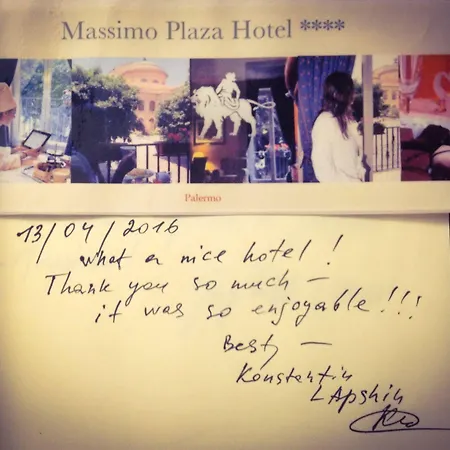 Massimo Plaza Hotel ****
Palermo
13/04/2016
what a nice hotel!
Thank you so much –
it was so enjoyable!!!
Best, –
Konstantin
LApshin